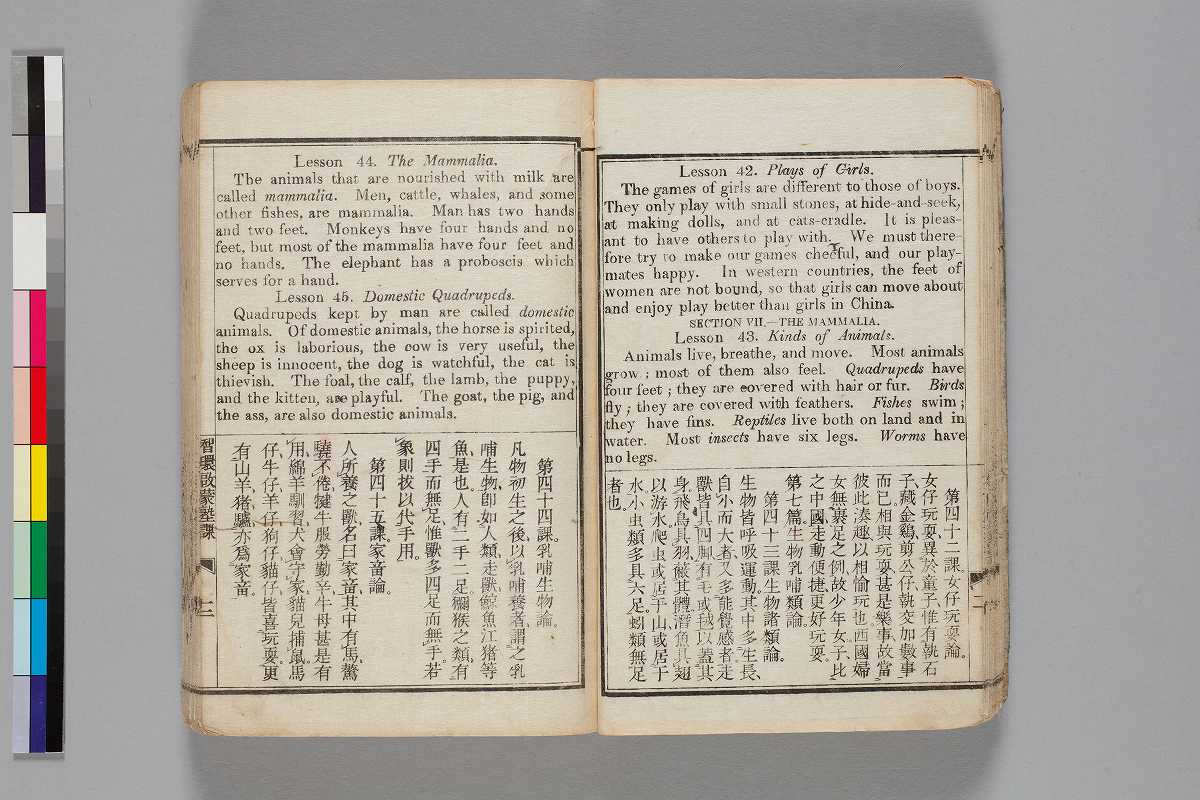 Lesson 42. Plays of Girls.
The games of girls are different to those of boys.
They only play with small stones, at hide-and-seek,
at making dolls, and at cats-cradle. It is pleas-
ant to have others to play with. We must there-
fore try to make our games cheeful, and our play-
mates happy. In western countries, the feet of
women are not bound, so that girls can move about
and enjoy play better than girls in China.
SECTION VII.—THE MAMMALIA.
Lesson 43. Kinds of Animals.
Animals live, breathe, and move. Most animals
grow; most of them also feel. Quadrupeds have
four feet; they are covered with hair or fur. Birds
fly; they are covered with feathers. Fishes swim;
they have fins. Reptiles live both on land and in
water. Most insects have six legs. Worms have
no legs.
第四十二課女仔玩耍論。
女仔玩耍、異於童子、惟有執石
子、藏金鷄、剪公仔、執交加數事
而已、相與玩耍、甚是樂事、故當
彼此湊趣、以相愉玩也、西國婦
女無裹足之例、故少年女子、比
之中國、走動便捷、更好玩耍。
第七篇生物乳哺類論。
第四十三課生物諸類論。
生物皆呼吸運動、其中多生長、
自小而大者、又多能覺感者、走
獸皆具四脚、有毛或毧以蓋其
身、飛鳥具羽、蔽其體、潛魚具翅
以游水、爬虫或居于山、或居于
水、小虫類多具六足。蚓類無足
者也。
Lesson 44. The Mammalia.
The animals that are nourished with milk are
called mammalia. Men, cattle, whales, and some
other fishes, are mammalia. Man has two hands
and two feet. Monkeys have four hands and no
feet, but most of the mammalia have four feet and
no hands. The elephant has a proboscis which
serves for a hand.
Lesson 45. Domestic Quadrupeds.
Quadrupeds kept by man are called domestic
animals. Of domestic animals, the horse is spirited,
the ox is laborious, the cow is very useful, the
sheep is innocent, the dog is watchful, the cat is
thievish. The foal, the calf, the lamb, the puppy,
and the kitten, are playful. The goat, the pig, and
the ass, are also domestic animals.
第四十四課。乳哺生物論。
凡物初生之後、以乳哺養者、謂之乳
哺生物、卽如人類、走獸、鯨魚、江猪等
魚是也。人有二手二足。獼猴之類、有
四手而無足、惟獸多四足而無手。若
象則拔以代手用。
第四十五課家畜論。
人所養之獸、名曰家畜、其中有馬驚
驍不倦、犍牛服勞勤辛、牛母甚是有
用、綿羊馴習、犬會守家、貓兒捕鼠、馬
仔、牛仔、羊仔、狗仔、貓仔、皆喜玩耍、更
有山羊、猪、驢、亦爲家畜。
智環啟蒙塾課